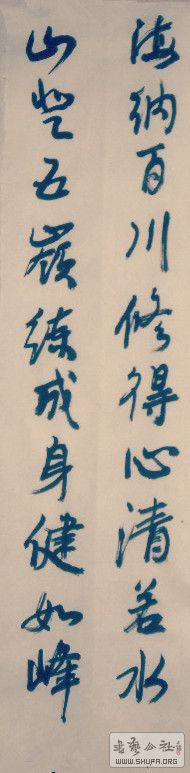 海纳百川修得心清若水
山登五嶺练成身健如峰
书艺公社
WWW.SHUFA.ORG